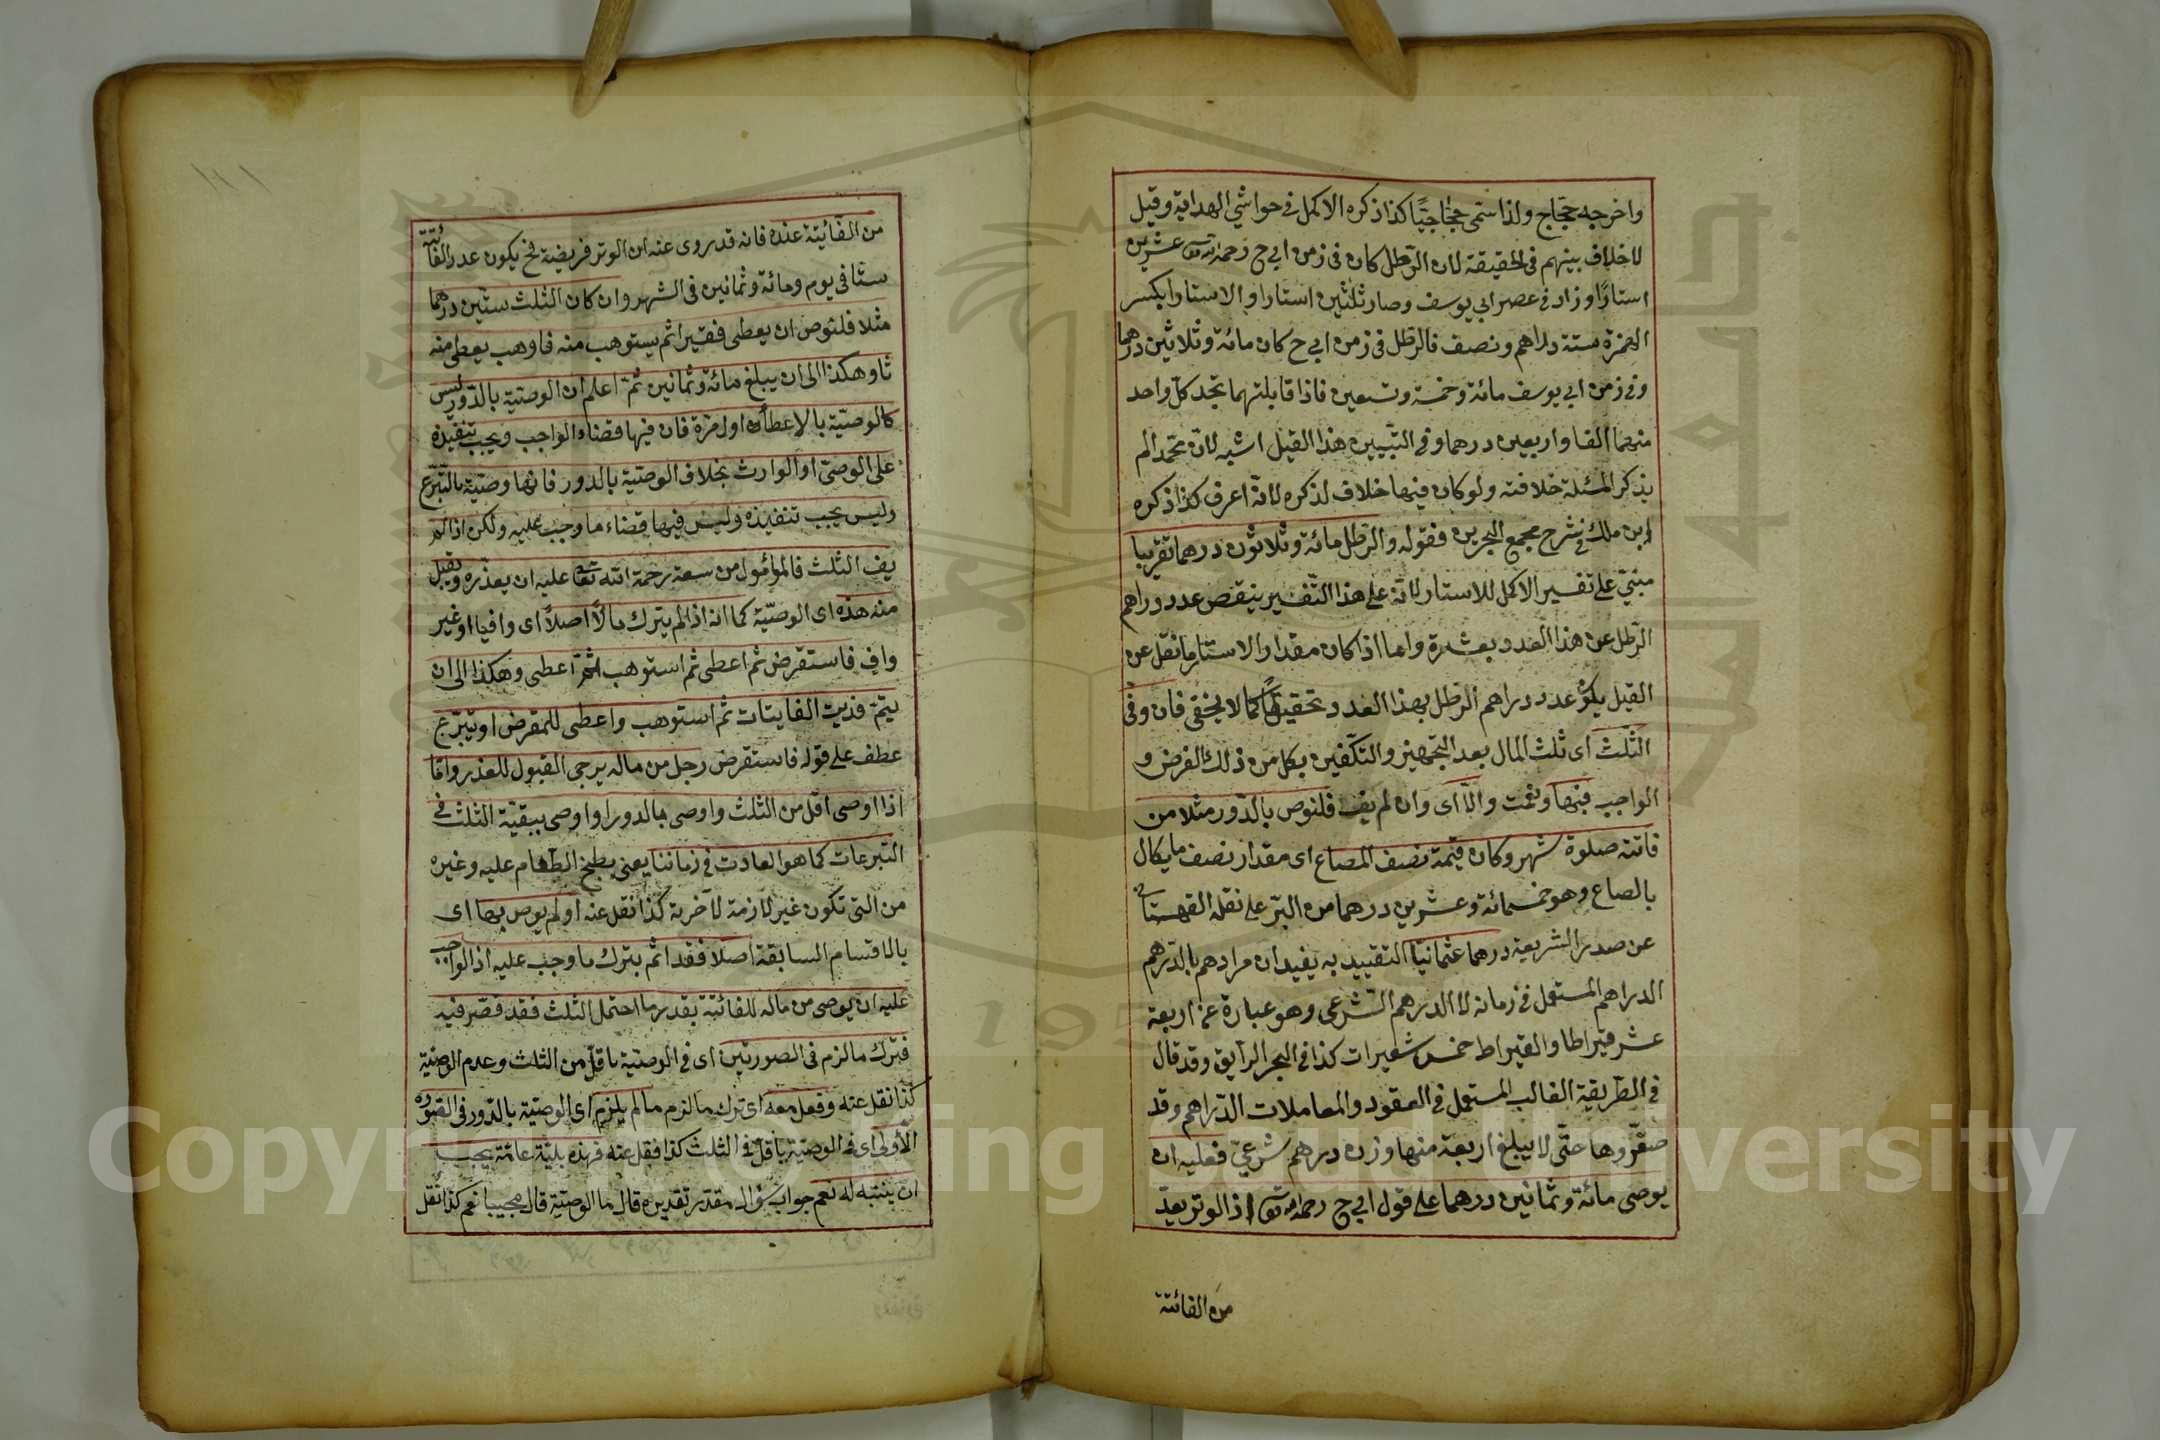 واخرجه حجّاج ولذا سمّى حجّاجيًّا كذا ذكره الاكمل فى حواشي الهداية وقيل
لا خلاف بينهم فى الحقيقة لان الرّطل كان فى زمن ابي ح رحمه الله تعالى عشرين
استارًا وزاد فى عصر ابي يوسف وصار ثلثين استارا والاستار بكسر
الهمزة ستة دراهم ونصف فالرّطل فى زمن ابي ح كان مائة وثلاثين درهما
وفى زمن ابي يوسف مائة وخمسة وتسعين فاذا قابلتهما تجد كلّ واحد
منهما الفا واربعين درهما وفى التّبيين هذا القيل اشبه لانّ محمّدا لم
يذكر المسئلة خلافتة ولو كان فيها خلاف لذكره لانّه اعرف كذا ذكره
ابن ملك فى شرح مجمع البحرين فقوله والرّطل مائة وثلاثون درهما تقريبا
مبنيّ على تفسير الاكمل للاستار لانّه على هذا التّفسير ينقص عدد دراهم
الرّطل عن هذا العدد بعشرة واما اذا كان مقدار الاستار ما نقل عن
القيل يكون عدد دراهم الرّطل بهذا العدد تحقيقًا كما لا يخفى فان وفى
الثّلث اى ثلث المال بعد التّجهيز والتّكفين بكل من ذلك الفرض و
الواجب فبها ونعمت والّا اى وان لم يف فلنوص بالدّور مثلا من
فاتته صلوة شهر وكان قيمة نصف الصاع اى مقدار نصف ما يكال
بالصاع وهو خمسمائة وعشرين درهما من البرّ على نقله القهستانى
عن صدر الشريعة درهما عثمانيّا التقييد به يفيد ان مرادهم بالدّرهم
الدراهم المستعمل فى زمانه لا الدرهم الشّرعى وهو عبارة عن اربعة
عشر قيراطا والقيراط خمس شعيرات كذا فى البحر الرّايق وقد قال
فى الطّريقة الغالب المستعمل فى العقود والمعاملات الدّراهم وقد
صغّروها حتّى لا يبلغ اربعة منها وزن درهم شرعيّ فعليه ان
يوصى مائة وثمانين درهما على قول ابي ح رحمه الله تعالى اذ الوتر يعدّ
من الفائتة
من الفائتة عنده فانه قد روى عنه ان الوتر فريضة فح يكون عدد الفائتة
ستّا فى يوم ومائة وثمانين فى الشهر وان كان الثلث ستّين درهما
مثلا فلنوص ان يعطى فقيرا ثم يستوهب منه فاوهب يعطى منه
ثا وهكذا الى ان يبلغ مائة وثمانين ثمّ اعلم ان الوصيّة بالدّور ليس
كالوصيّة بالاعطاء اول مرّة فان فيها قضاء الواجب ويجب تنفيذه
على الوصىّ او الوارث بخلاف الوصيّة بالدور فانها وصيّة بالتّبرّع
وليس يجب تنفيذه وليس فيها قضاء ما وجب عليه ولكن اذا لم
يف الثلث فالمأمول من سعة رحمة الله تعالى عليه ان يعذره ويقبل
منه هذه اى الوصيّة كما انه اذا لم يترك مالًا اصلاً اى وافيا او غير
واف فاستقرض ثم اعطى ثم استوهب ثمّ اعطى وهكذا الى ان
يتمّ فدية الفايتات ثم استوهب واعطى للمقرض او تبرّع
عطف على قوله فاستقرض رجل من ماله يرجى القبول للعذر وامّا
اذا اوصى اقل من الثلث واوصى بالدور او اوصى ببقيّة الثلث فى
التبرعات كما هو العادت فى زماننا يعنى بطبخ الطّعام عليه وغيره
من التى تكون غير لازمة لآخرية كذا نقل عنه او لم يوص بها اى
بالاقسام السابقة اصلا فقد اثم بترك ما وجب عليه اذ الواجب
عليه ان يوصى من ماله للفائتة بقدر ما احتمل الثلث فقد قصّر فيه
فترك ما لزم فى الصورتين اى فى الوصيّة باقلّ من الثلث وعدم الوصيّة
كذا نقل عنه وفعل معه اى ترك ما لزم ما لم يلزم اى الوصيّة بالدّور فى الصورة
الأولى اى فى الوصيّة باقلّ فى الثلث كذا نقل عنه فهذه بليّة عامّة يجب
ان ينتبه له نعم جواب سؤال مقدر تقديره قال ما الوصيّة قال مجيبا نعم كذا نقل
Copyright © King Saud University